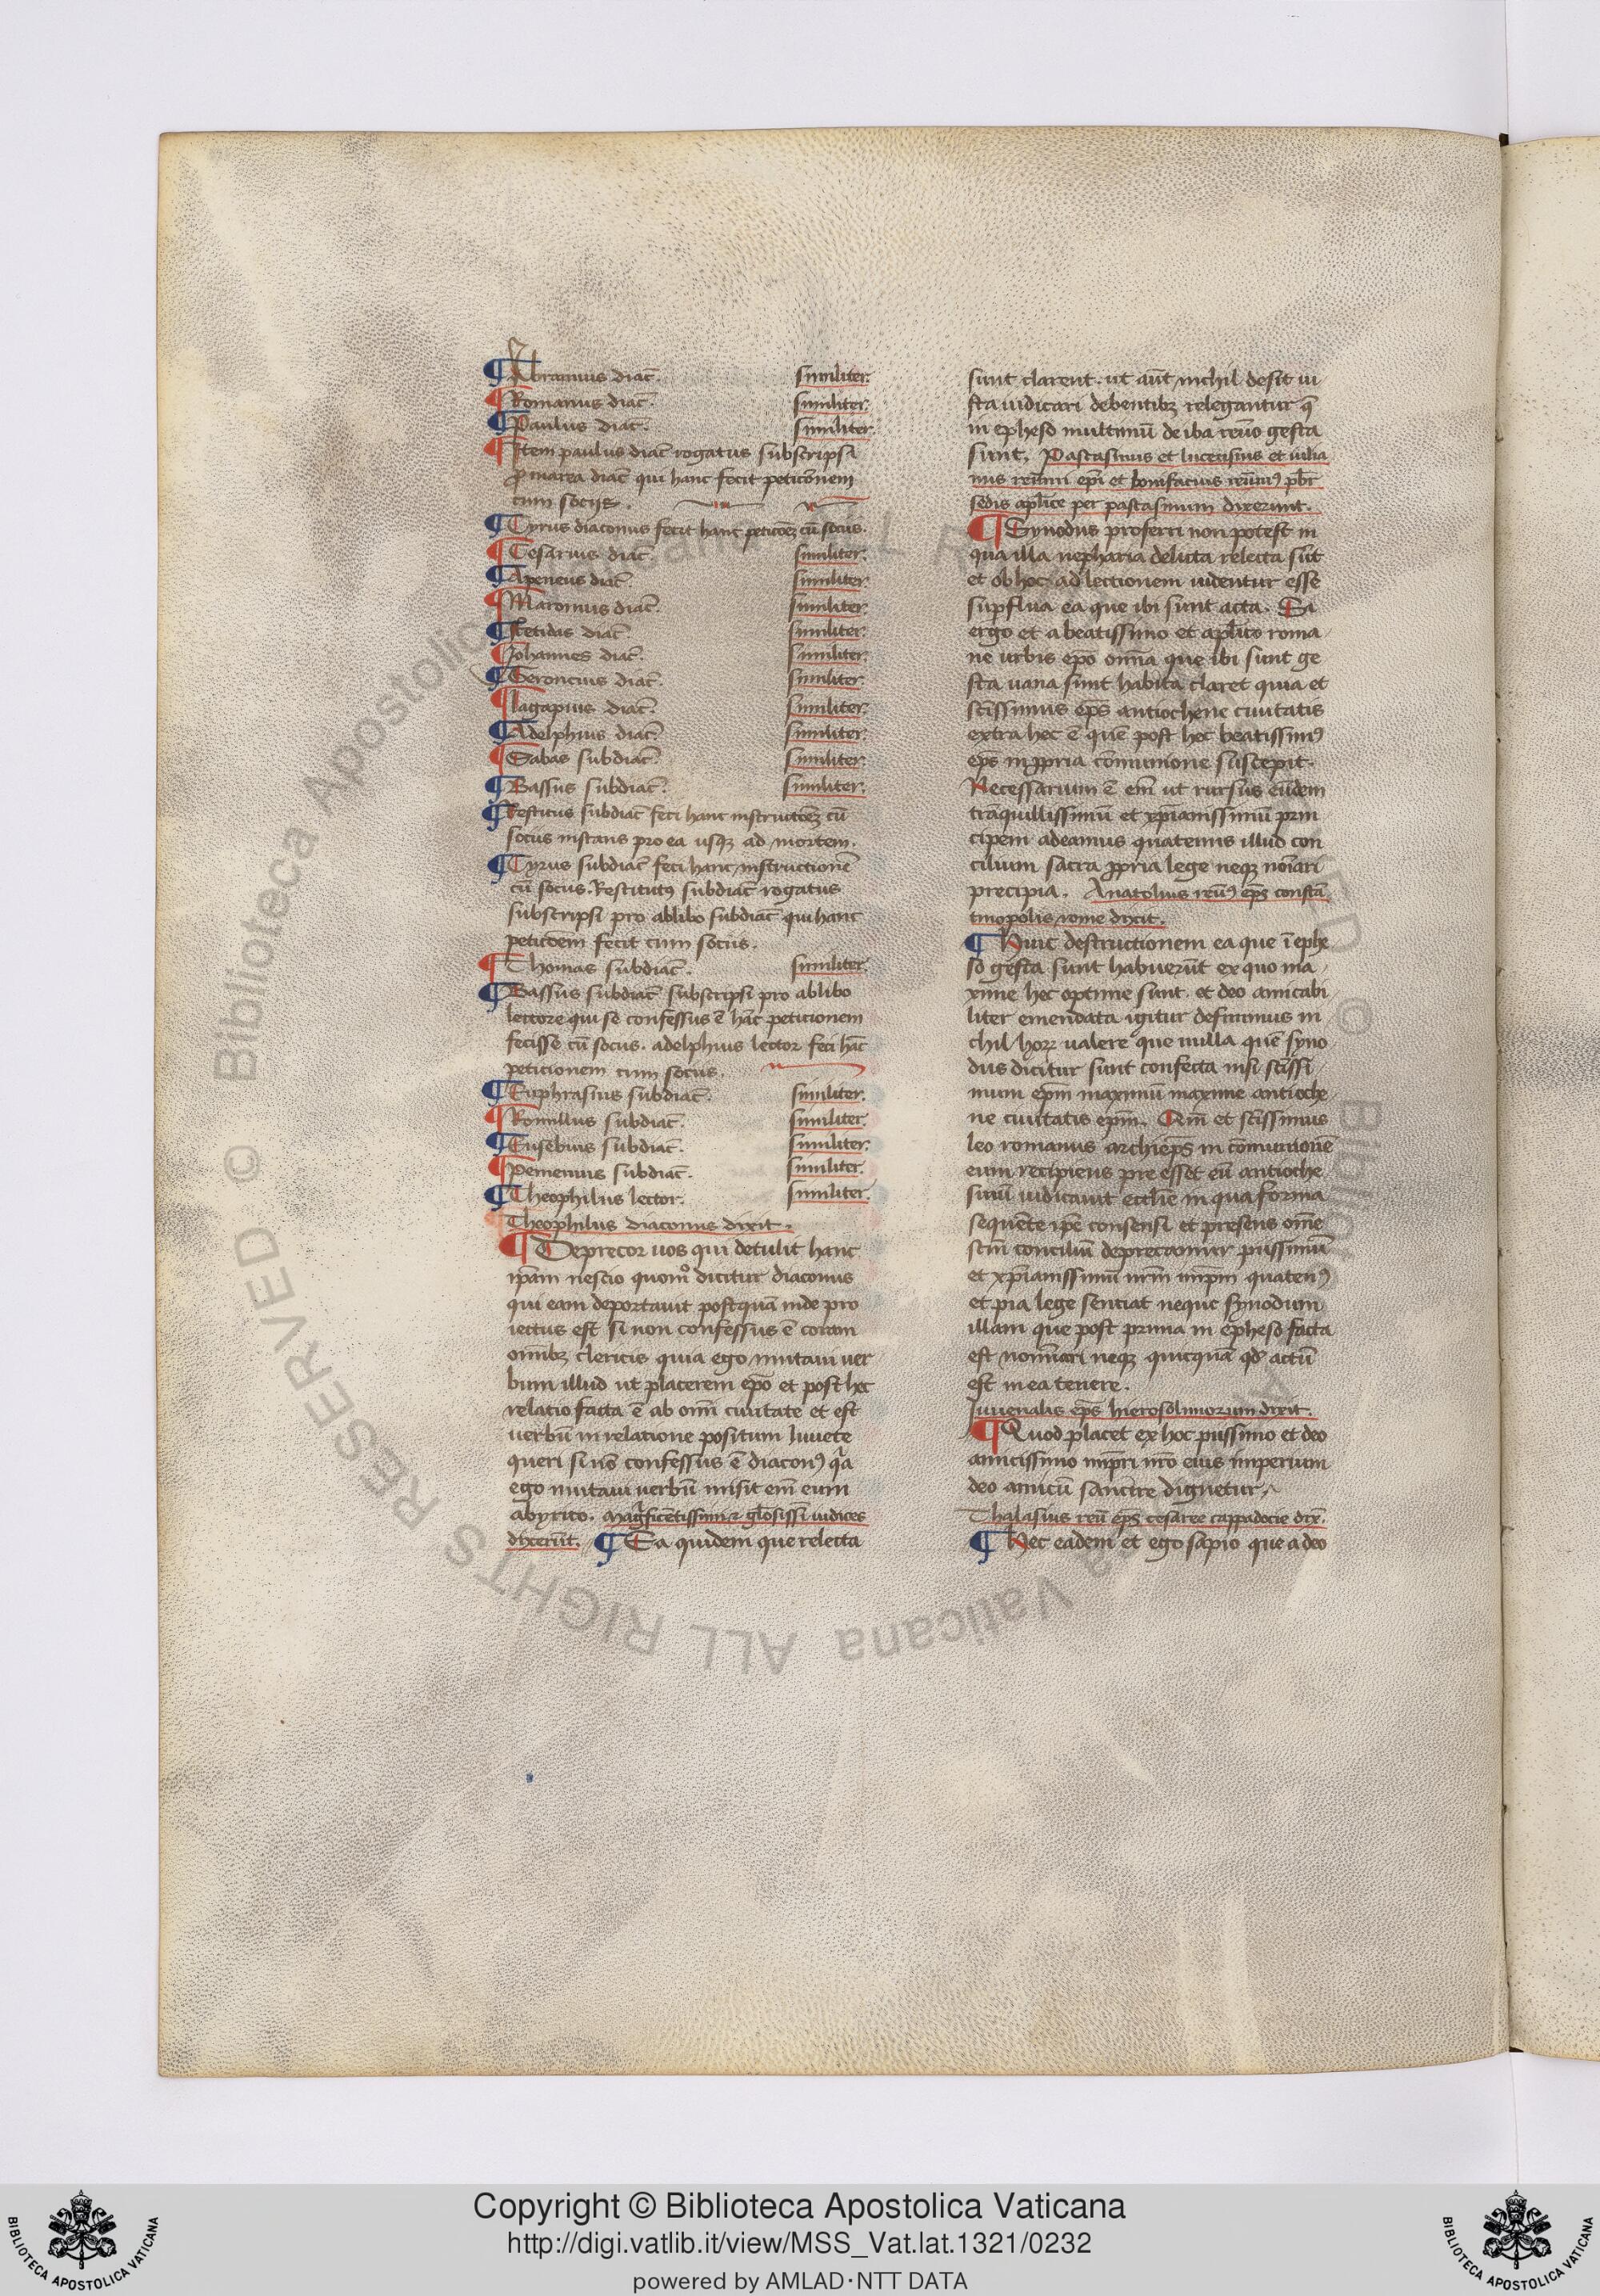 ¶ Abramius diac̄. similiter.
¶ Romanus diac̄. similiter.
¶ Paulus diac̄. similiter.
¶ Item paulus diac̄ rogatus subscripsi
ꝓ marea diac̄ qui hanc fecit peticōnem
cum sociis.
¶ Cyrus diaconus fecit hanc peticōeꝫ cū sociis.
¶ Cesarius diac̄. similiter.
¶ Apeneus diac̄. similiter.
¶ Maronius diac̄. similiter.
¶ diac̄. similiter.
¶ Johannes diac̄. similiter.
¶ Geroncius diac̄. similiter.
¶ lagapius diac̄. similiter.
¶ Adelphius diac̄. similiter.
¶ Sabas subdiac̄. similiter.
¶ Bassus subdiac̄. similiter.
¶ Resticus subdiac̄ feci hanc instructōeꝫ cū
sociis instans pro ea usqꝫ ad mortem.
¶ Cyrus subdiac̄ feci hanc instructionē
cū sociis. Restitutꝰ subdiac̄ rogatus
subscripsi pro ablibo subdiac̄ qui hanc
peticōem fecit cum sociis.
¶ Thomas subdiac̄. similiter.
¶ Bassus subdiac̄ subscripsi pro ablibo
lectore qui se confessus ē hāc peticionem
fecisse cū sociis. adelphius lector feci hāc
peticionem cum sociis.
¶ Euphrasius subdiac̄. similiter.
¶ Romillus subdiac̄. similiter.
¶ Eusebius subdiac̄. similiter.
¶ Pemenius subdiac̄. similiter.
¶ Theophilus lector. similiter.
Theophilus diaconus dixit.
¶ Deprecor uos qui detulit hanc
ip̄am nescio quomº dicitur diaconus
qui eam deportauit postquā inde pro
iectus est si non confessus ē coram
om̄ibꝫ clericis quia ego mutaui uer
bum illud ut placerem ep̄o et post hec
relatio facta ē ab om̄i ciuitate et est
uerbū in relatione positum Iuuete
queri si nō confessus ē diaconꝰ qa
ego mutaui uerbū misit em̄ eum
abyrito. Magficētissimi ⁊ glōsissī iudices
dixerūt. ¶ Ea quidem que relecta
sunt clarent. ut aūt nichil desit iu
sta iudicari debentibꝫ relegantur q̄
in epheso multimū de iba reūo gesta
sunt. Pascasinus et lucensius et iulia
nus reūmi ep̄i et bonifacius reūmꝰ pb̄r
sedis apl̄ice per pascasinum dixerunt.
¶ Synodus proferri non potest in
qua illa nepharia delicta relecta sūt
et ob hoc ad lectionem uidentur esse
supflua ea que ibi sunt acta. Si
ergo et a beatissimo et apl̄ico roma
ne urbis ep̄o om̄ia que ibi sunt ge
sta uana sunt habita claret quia et
sc̄issimus ep̄s antiochene ciuitatis
extra hec ē quē post hec beatissimꝰ
ep̄s in ꝓpria cōmunione suscepit.
Necessarium ē em̄ ut rursus eūdem
trāquillissimū et xp̄ianissimū prin
cipem adeamus quatenus illud con
cilium sacra ꝓpria lege neqꝫ noīari
precipia. Anatolius reūꝰ ep̄s constā
tinopolis rome dixit.
¶ Huic destructionem ea que ī ephe
so gesta sunt habuerūt ex quo ma
xime hec optime sunt. et deo amicabi
liter emendata igitur definimus ni
chil hoꝝ ualere que nulla quē syno
dus dicitur sunt confecta nisi sc̄issi
mum ep̄m maximū maxime antioche
ne ciuitatis ep̄m. Qm̄ et sc̄issimus
leo romanus archiep̄s in cōmunione
eum recipiens pre esset eū antioche
sium iudicauit eccl̄ie in qua forma
sequēte ip̄e consensi et presens om̄e
sc̄m conciliū deprecamur piissimū
et xp̄ianissimū nr̄m imp̄m quatenꝰ
et pia lege senciat neque synodum
illam que post prima in epheso facta
est nomīari neqꝫ quicquā qd̄ actū
est in ea tenere.
Iuuenalis ep̄s hierosolimorum dixit.
¶ Quod placet ex hoc piissimo et deo
amicissimo imp̄ri nr̄o eius imperium
deo amicū sancire dignetur.
Thalasius reū ep̄s cesaree cappadocie dix̄.
¶ Hec eadem et ego sapio que a deo
© Biblioteca Apostolica Vaticana ALL RIGHTS RESERVED
Copyright © Biblioteca Apostolica Vaticana
http://digi.vatlib.it/view/MSS_Vat.lat.1321/0232
powered by AMLAD·NTT DATA
BIBLIOTECA APOSTOLICA VATICANA
BIBLIOTECA APOSTOLICA VATICANA